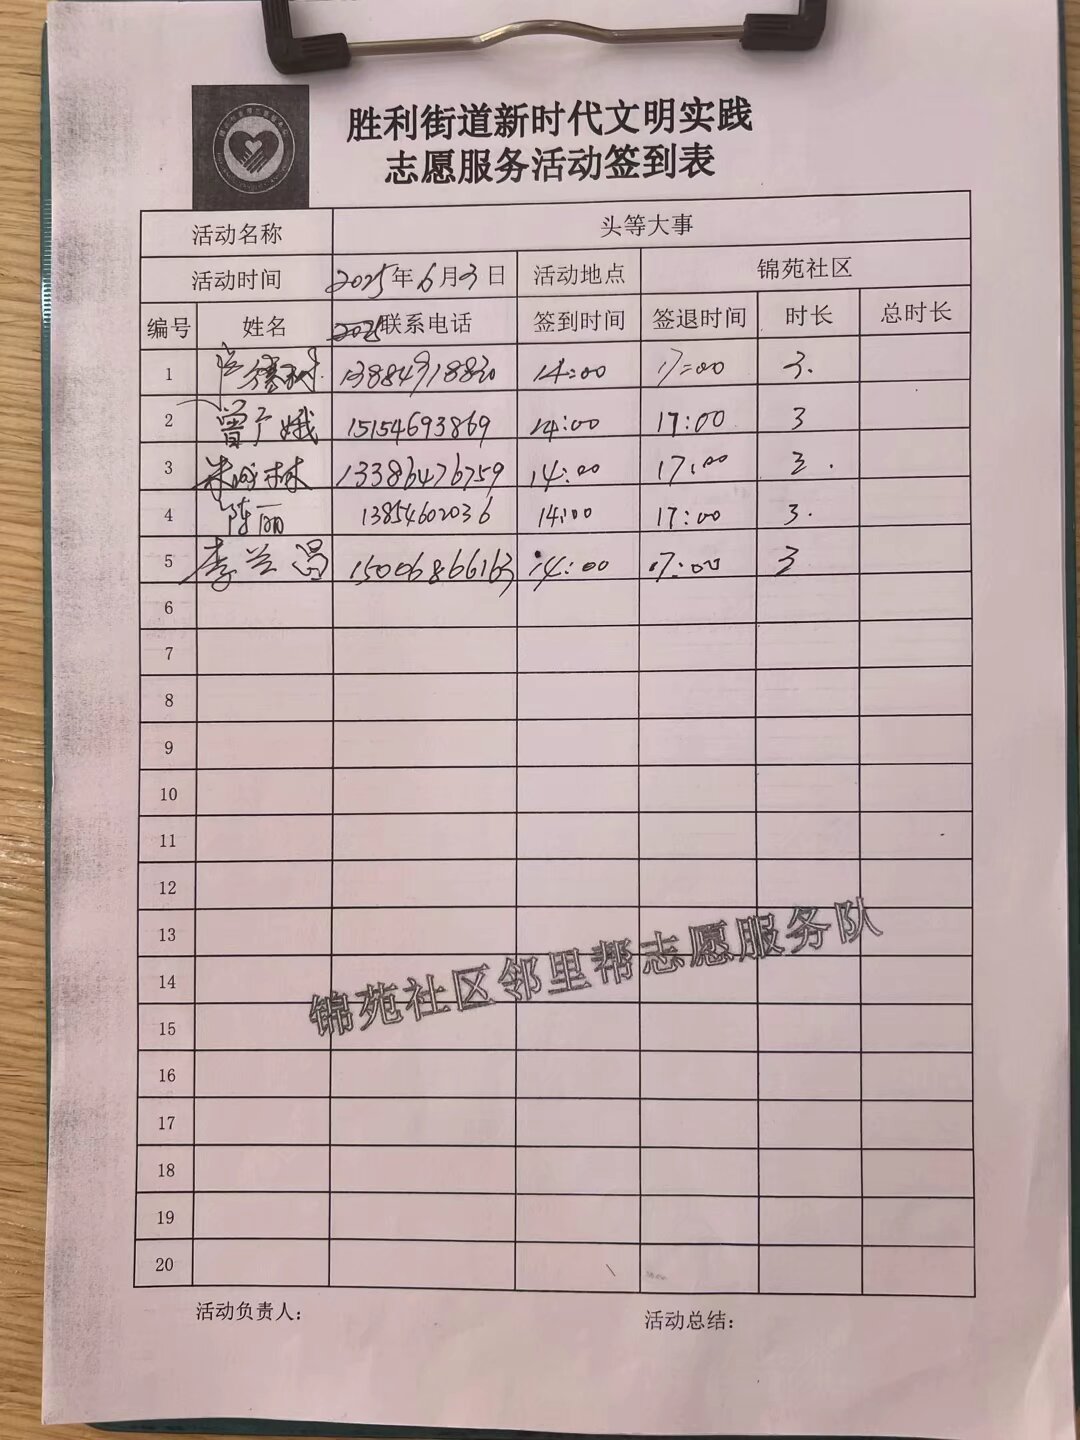 胜利街道新时代文明实践
志愿服务活动签到表
活动名称 头等大事
活动时间 2025年6月3日 活动地点 锦苑社区
编号 姓名 联系电话 签到时间 签退时间 时长 总时长
1 13884918830 14:00 17:00 3.
2 曾广娥 15154693869 14:00 17:00 3
3 13386476759 14:00 17:00 3.
4 陈丽 13854602036 14:00 17:00 3.
5 李兰昌 15006866163 14:00 17:00 3
6
7
8
9
10
11
12
13
14
15
16
17
18
19
20
锦苑社区邻里帮志愿服务队
活动负责人: 活动总结: